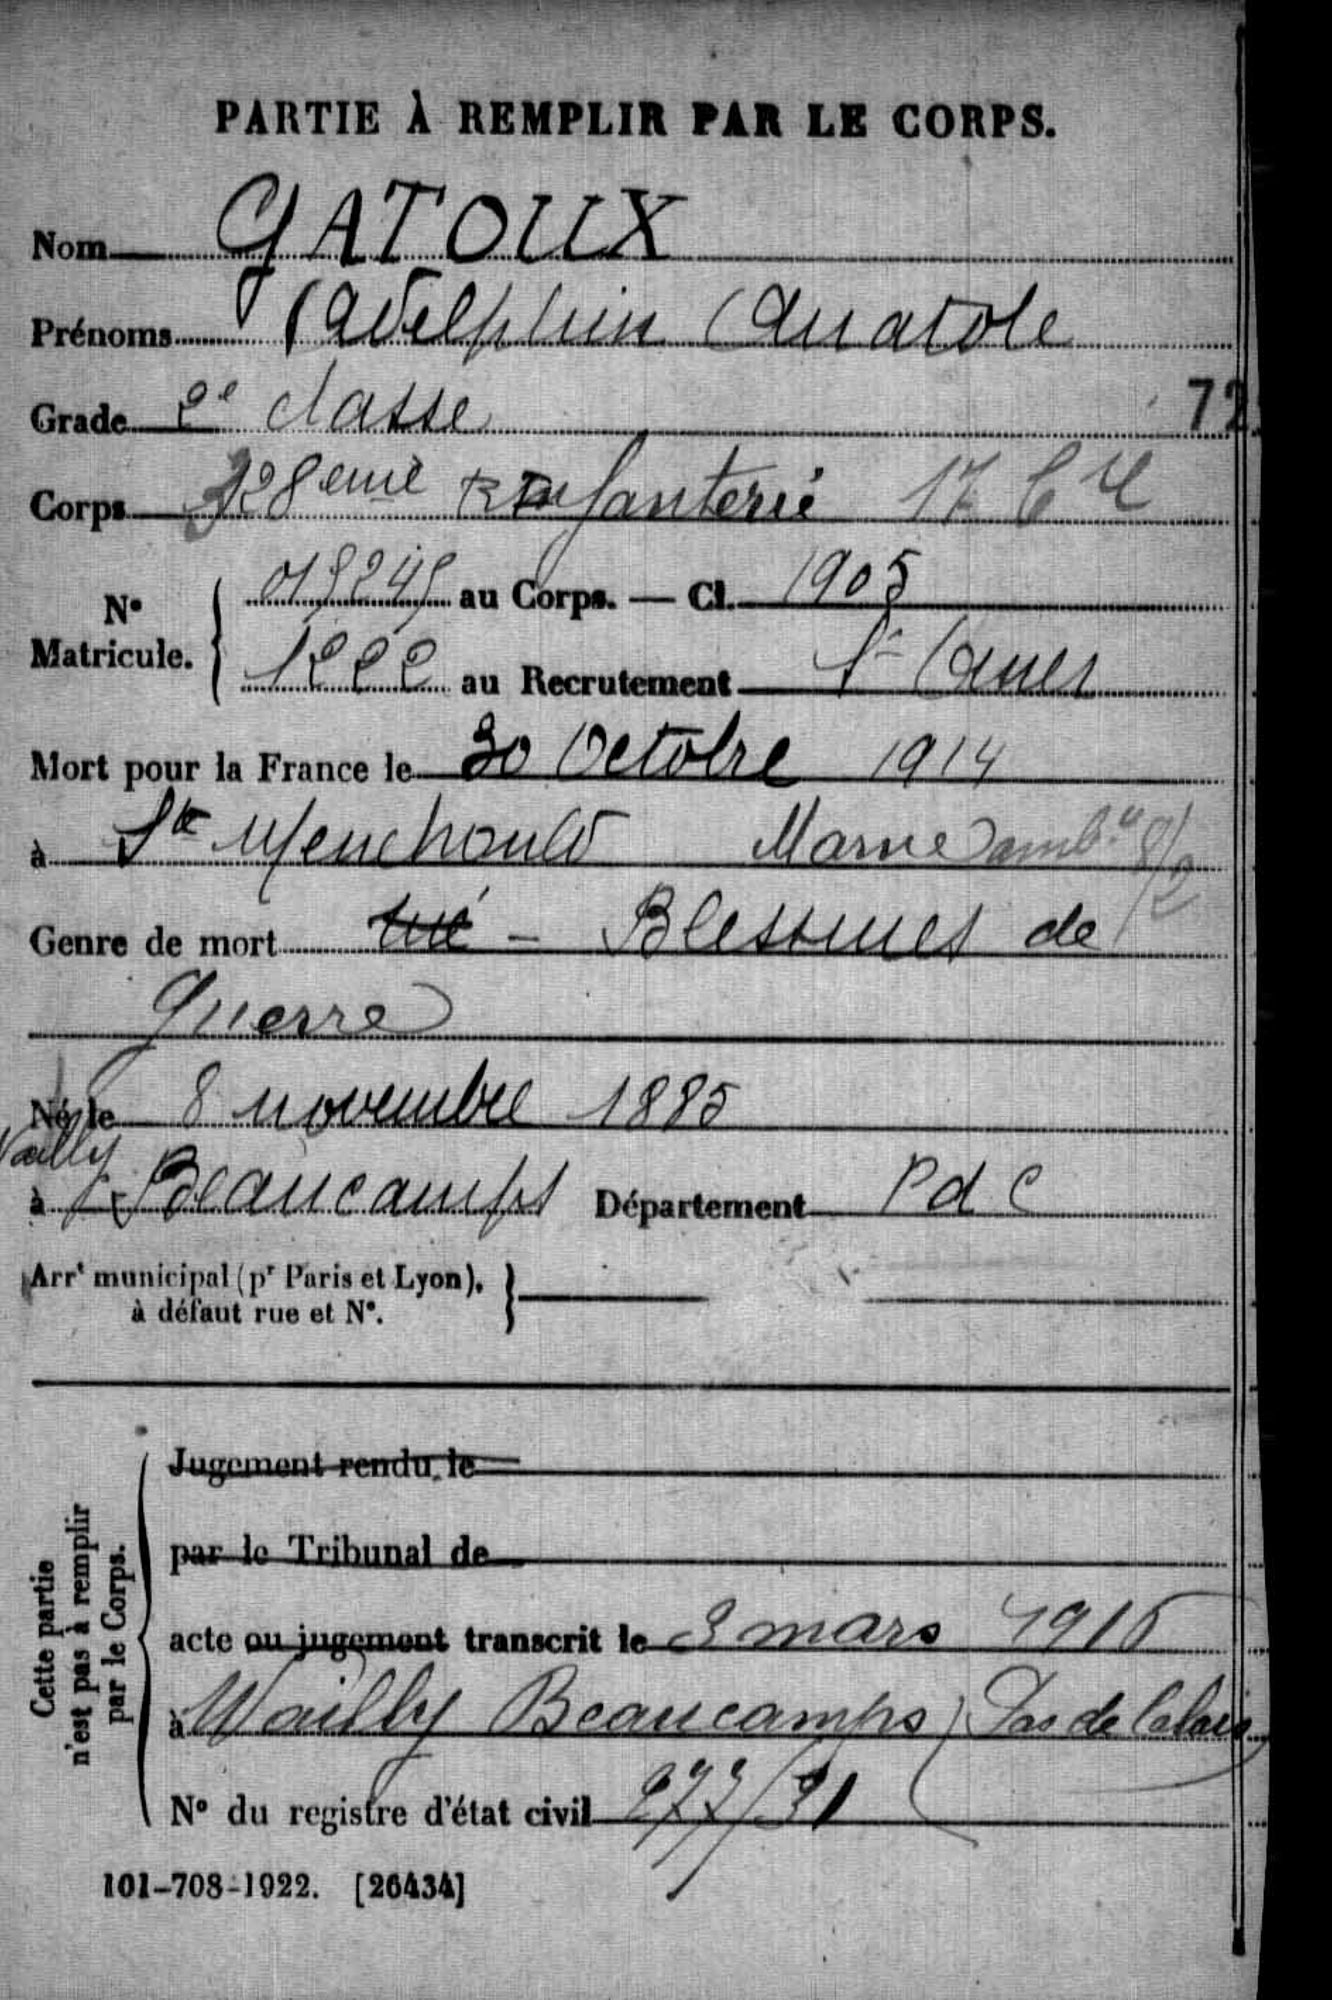 PARTIE À REMPLIR PAR LE CORPS.
Nom GATOUX
Prénoms Adelphin Anatole
Grade 2e classe
72
Corps 328eme RInfanterie 17 Cie
N° Matricule. 019245 au Corps. — Cl. 1905
1222 au Recrutement St Omer
Mort pour la France le 30 Octobre 1914
à Ste Menehould Marne amb.ce 8/2
Genre de mort tué - Blessures de
Guerre
Né le 8 novembre 1885
Wailly
à Beaucamps Département P d C
Arrt municipal (pr Paris et Lyon),
à défaut rue et N°.
Cette partie
n'est pas à remplir
par le Corps.
Jugement rendu le
par le Tribunal de
acte ou jugement transcrit le 3 mars 1915
à Wailly Beaucamps (Pas de Calais)
N° du registre d'état civil 277/31
101-708-1922. [26434]